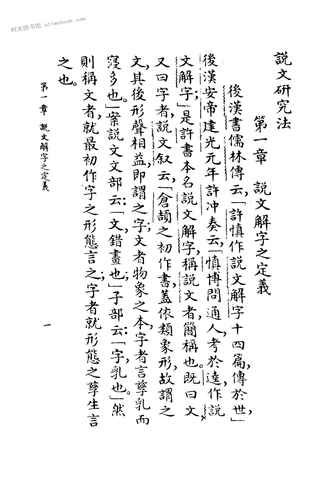 说文研究法
第一章 說文解字之定義
後漢書儒林傳云，「許慎作說文解字十四篇，傳於世」
後漢安帝建光元年許沖奏云，「慎博問通人，考於逵，作說
文解字」，是許書本名說文解字，稱說文者，簡稱也。既曰文，
又曰字者，說文叙云，「倉頡之初作書，蓋依類象形，故謂之
文，其後形聲相益，即謂之字，文者物象之本，字者言孳乳而
寖多也」案說文文部云：「文，錯畫也」子部云：「字，乳也」然
則稱文者，就最初作字之形態言之；字者就形態之孳生言
之也。
第一章 說文解字之定義
一